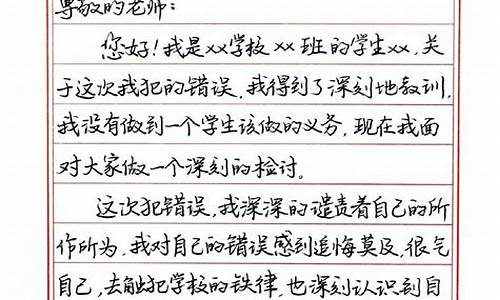 尊敬的老师：
您好！我是xx学校xx班的学生xx，关
于这次我犯的错误，我得到了深刻地教训，
我没有做到一个学生该做的义务，现在我面
对大家做一个深刻的检讨。
这次犯错误，我深深的谴责着自己的所
作所为，我对自己的错误感到追悔莫及，很气
自己，去触犯学校的铁律，也深刻认识到自